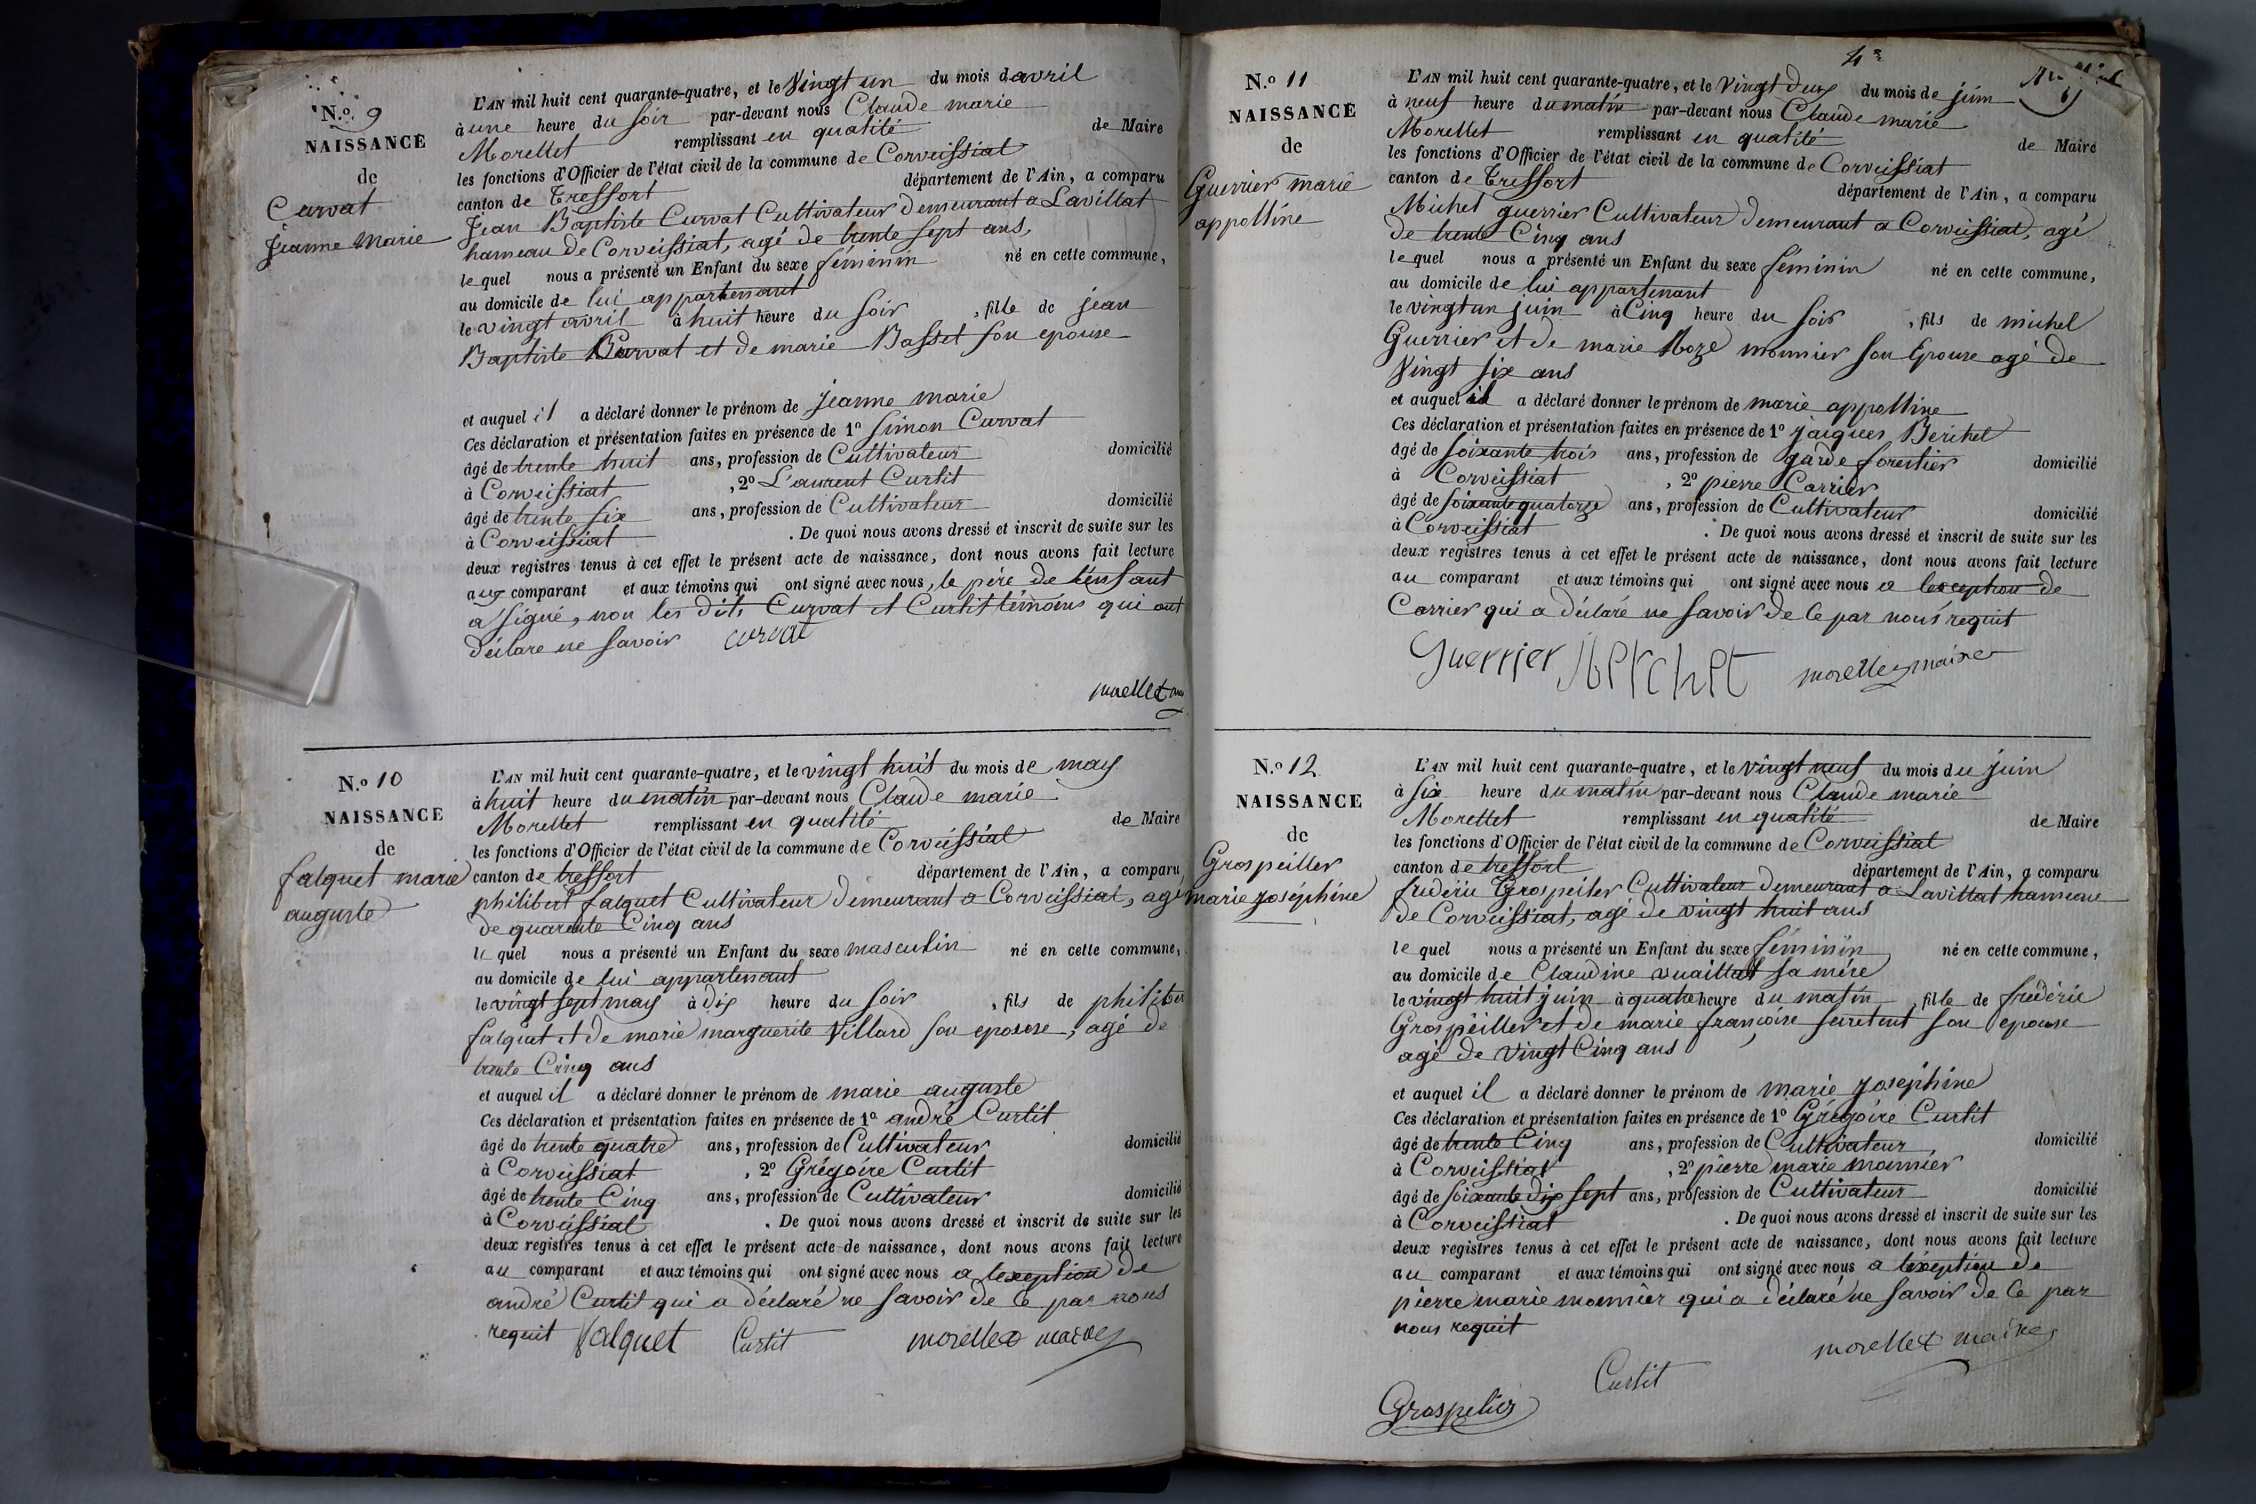 N.º 9
NAISSANCE
de
Curvat
Jeanne Marie
L'AN mil huit cent quarante-quatre, et le vingt un du mois d'avril
à une heure du soir par-devant nous Claude marie
Morellet remplissant en qualité de Maire
les fonctions d'Officier de l'état civil de la commune de Corveissiat
canton de Treffort département de l'Ain, a comparu
Jean Baptiste Curvat Cultivateur demeurant a Lavillat
hameau de Corveissiat, agé de trente sept ans,
le quel nous a présenté un Enfant du sexe féminin né en cette commune,
au domicile de lui appartenant
le vingt avril à huit heure du soir, fille de jean
Baptiste Curvat et de marie Basset son epouse
et auquel il a déclaré donner le prénom de jeanne marie
Ces déclaration et présentation faites en présence de 1º Simon Curvat
âgé de trente huit ans, profession de Cultivateur domicilié
à Corveissiat, 2º Laurent Curtit
âgé de trente six ans, profession de Cultivateur domicilié
à Corveissiat. De quoi nous avons dressé et inscrit de suite sur les
deux registres tenus à cet effet le présent acte de naissance, dont nous avons fait lecture
aux comparant et aux témoins qui ont signé avec nous, le père de l'enfant
a signé, non les dits Curvat et Curtit témoins qui ont
déclare ne savoir curvat
morellet
N.º 10
NAISSANCE
de
falquet marie
auguste
L'AN mil huit cent quarante-quatre, et le vingt huit du mois de may
à huit heure du matin par-devant nous Claude marie
Morellet remplissant en qualité de Maire
les fonctions d'Officier de l'état civil de la commune de Corveissiat
canton de treffort département de l'Ain, a comparu
philibert falquet Cultivateur demeurant a Corveissiat, agé
de quarente Cinq ans
le quel nous a présenté un Enfant du sexe masculin né en cette commune,
au domicile de lui appartenant
le vingt sept may à dix heure du soir, fils de philiber
falquet et de marie marguerite Villard son epouse, agé de
trente Cinq ans
et auquel il a déclaré donner le prénom de marie auguste
Ces déclaration et présentation faites en présence de 1º andré Curtit
âgé de trente quatre ans, profession de Cultivateur domicilié
à Corveissiat, 2º Grégoire Curtit
âgé de trente Cinq ans, profession de Cultivateur domicilié
à Corveissiat. De quoi nous avons dressé et inscrit de suite sur les
deux registres tenus à cet effet le présent acte de naissance, dont nous avons fait lecture
au comparant et aux témoins qui ont signé avec nous a lexeption de
andré Curtit qui a déclaré ne savoir de ce par nous
requit falquet Curtit morellet maire
N.º 11
NAISSANCE
de
Guerrier marie
appolline
L'AN mil huit cent quarante-quatre, et le vingt deux du mois de juin
à neuf heure du matin par-devant nous Claude marie
Morellet remplissant en qualité de Maire
les fonctions d'Officier de l'état civil de la commune de Corveissiat
canton de Treffort département de l'Ain, a comparu
Michel guerrier Cultivateur demeurant a Corveissiat, agé
de trente Cinq ans
le quel nous a présenté un Enfant du sexe féminin né en cette commune,
au domicile de lui appartenant
le vingt un juin à Cinq heure du soir, fils de michel
Guerrier et de marie Roze monnier son Epouse agé de
vingt six ans
et auquel il a déclaré donner le prénom de marie appolline
Ces déclaration et présentation faites en présence de 1º jaiques Berchet
âgé de soixante trois ans, profession de garde forestier domicilié
à Corveissiat, 2º pierre Carrier
âgé de soixante quatorze ans, profession de Cultivateur domicilié
à Corveissiat. De quoi nous avons dressé et inscrit de suite sur les
deux registres tenus à cet effet le présent acte de naissance, dont nous avons fait lecture
au comparant et aux témoins qui ont signé avec nous a lexception de
Carrier qui a déclaré ne savoir de ce par nous requit
Guerrier Berchet morellet maire
N.º 12
NAISSANCE
de
Grospeiller
marie joséphine
L'AN mil huit cent quarante-quatre, et le vingt neuf du mois du juin
à six heure du matin par-devant nous Claude marie
Morellet remplissant en qualité de Maire
les fonctions d'Officier de l'état civil de la commune de Corveissiat
canton de treffort département de l'Ain, a comparu
fréderic Grospeiler Cultivateur demeurant a Lavillat hameau
de Corveissiat, agé de vingt huit ans
le quel nous a présenté un Enfant du sexe féminin né en cette commune,
au domicile de Claudine vuaillat sa mére
le vingt huit juin à quatre heure du matin, fille de fréderic
Grospeiller et de marie françoise son epouse
agé de vingt Cinq ans
et auquel il a déclaré donner le prénom de marie joséphine
Ces déclaration et présentation faites en présence de 1º Grégoire Curtit
âgé de trente Cinq ans, profession de Cultivateur domicilié
à Corveissiat, 2º pierre marie monnier
âgé de soixante dix sept ans, profession de Cultivateur domicilié
à Corveissiat. De quoi nous avons dressé et inscrit de suite sur les
deux registres tenus à cet effet le présent acte de naissance, dont nous avons fait lecture
au comparant et aux témoins qui ont signé avec nous a léxeption de
pierre marie monnier qui a déclaré ne savoir de ce par
nous requit
morellet maire
Curtit
Grospelier